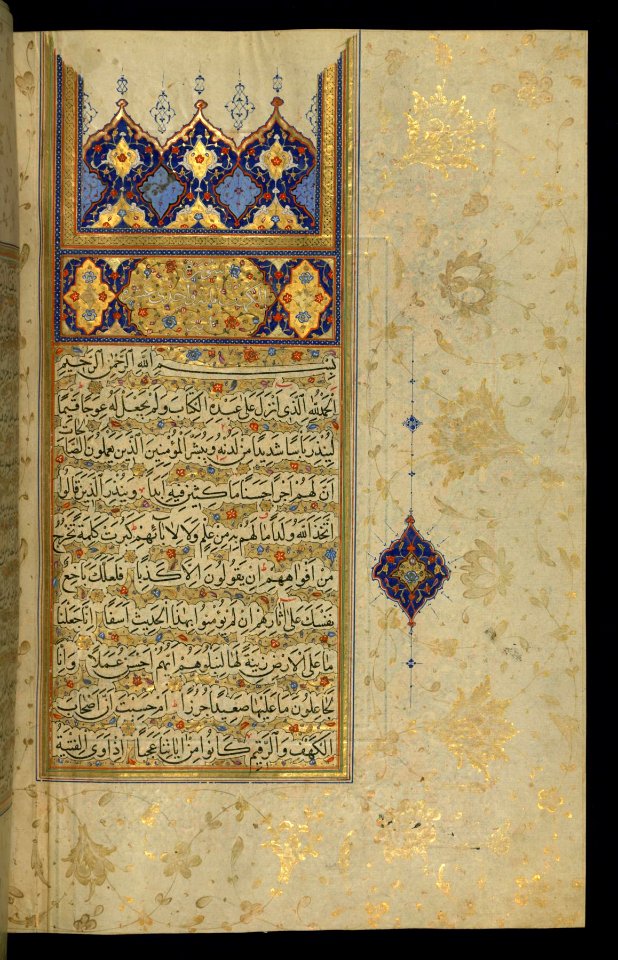 بِسْمِ اللهِ الرَّحْمٰنِ الرَّحِيمِ
الحَمْدُ لِلّٰهِ الَّذِي أَنْزَلَ عَلَى عَبْدِهِ الكِتَابَ وَلَمْ يَجْعَلْ لَهُ عِوَجًا قَيِّمًا
لِيُنْذِرَ بَأْسًا شَدِيدًا مِنْ لَدُنْهُ وَيُبَشِّرَ المُؤْمِنِينَ الَّذِينَ يَعْمَلُونَ الصَّالِحَاتِ
أَنَّ لَهُمْ أَجْرًا حَسَنًا مَاكِثِينَ فِيهِ أَبَدًا وَيُنْذِرَ الَّذِينَ قَالُوا
اتَّخَذَ اللهُ وَلَدًا مَا لَهُمْ بِهِ مِنْ عِلْمٍ وَلَا لِآبَائِهِمْ كَبُرَتْ كَلِمَةً تَخْرُجُ
مِنْ أَفْوَاهِهِمْ إِنْ يَقُولُونَ إِلَّا كَذِبًا فَلَعَلَّكَ بَاخِعٌ
نَفْسَكَ عَلَى آثَارِهِمْ إِنْ لَمْ يُؤْمِنُوا بِهٰذَا الحَدِيثِ أَسَفًا إِنَّا جَعَلْنَا
مَا عَلَى الأَرْضِ زِينَةً لَهَا لِنَبْلُوَهُمْ أَيُّهُمْ أَحْسَنُ عَمَلًا وَإِنَّا
لَجَاعِلُونَ مَا عَلَيْهَا صَعِيدًا جُرُزًا أَمْ حَسِبْتَ أَنَّ أَصْحَابَ
الكَهْفِ وَالرَّقِيمِ كَانُوا مِنْ آيَاتِنَا عَجَبًا إِذْ أَوَى الفِتْيَةُ